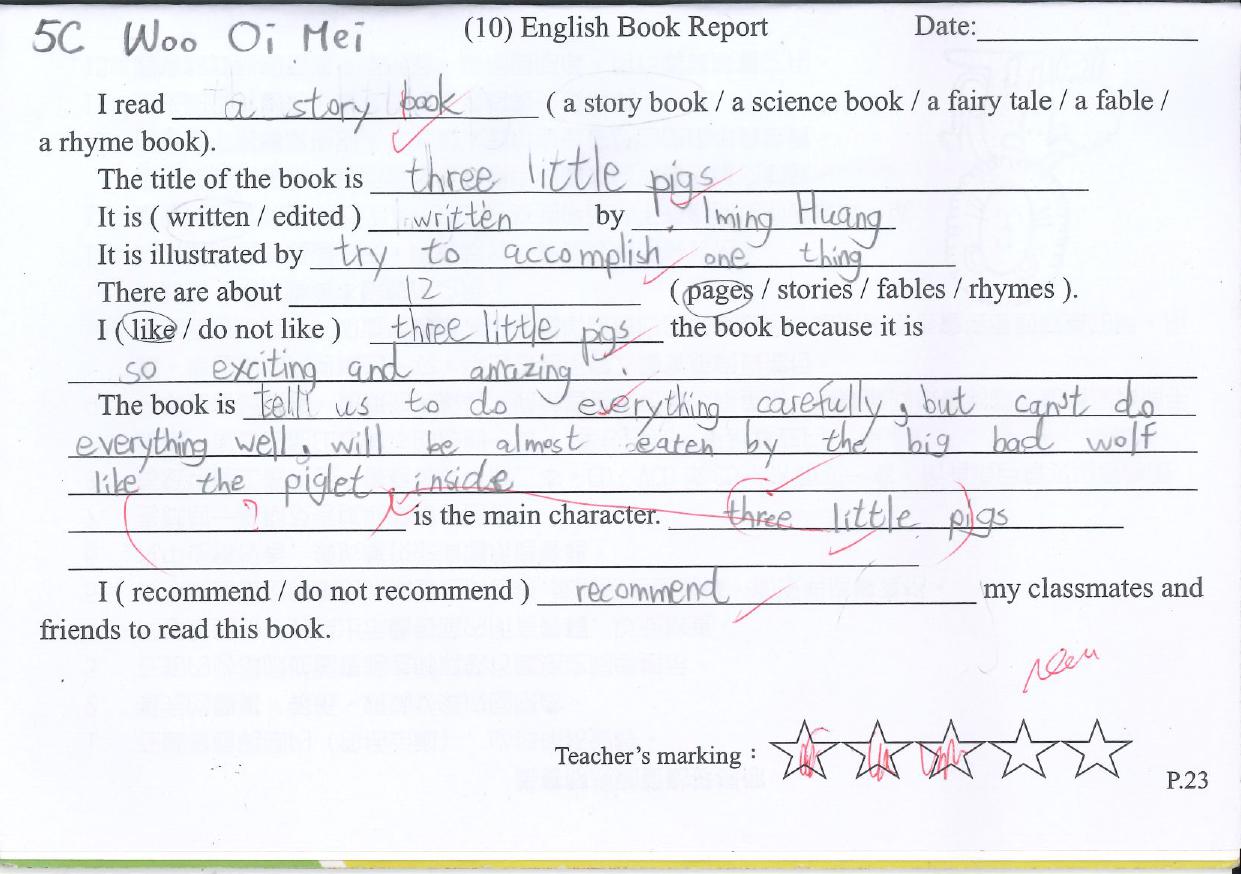 5C Woo Oi Mei (10) English Book Report Date:
I read a story book ( a story book / a science book / a fairy tale / a fable /
a rhyme book).
The title of the book is three little pigs
It is ( written / edited ) written by Iming Huang
It is illustrated by try to accomplish one thing
There are about 12 ( pages / stories / fables / rhymes ).
I ( like / do not like ) three little pgs the book because it is
so exciting and amazing .
The book is tell us to do everything carefully, but can't do
everything well, will be almost eaten by the big bad wolf
like the piglet inside
? is the main character. three little pigs
I ( recommend / do not recommend ) recommend my classmates and
friends to read this book.
Teacher's marking :
P.23